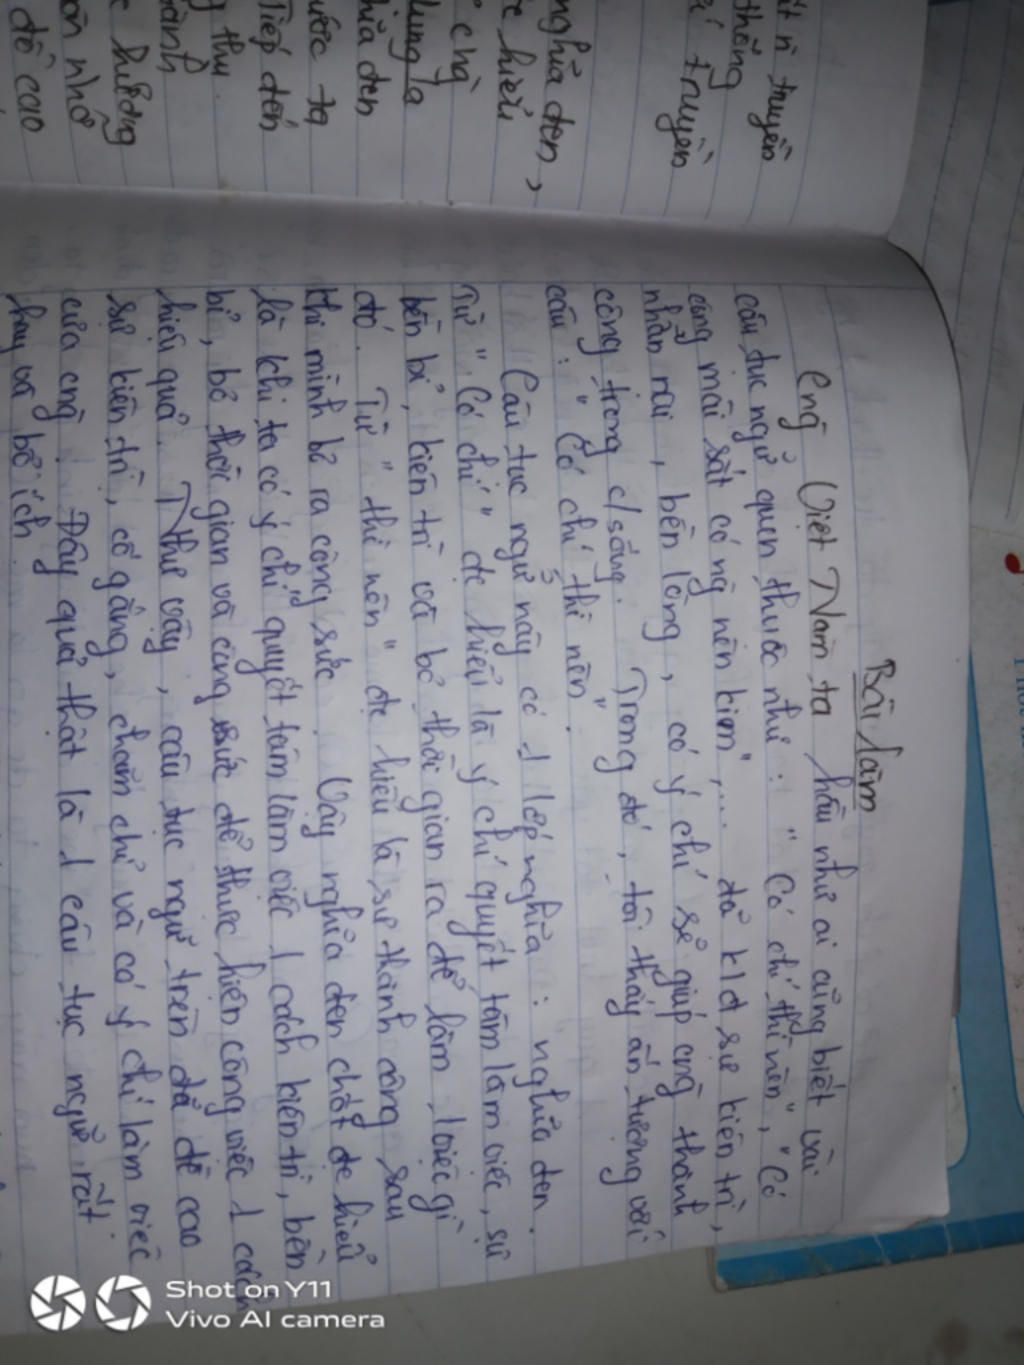 ít nì truyền
thống
truyền
nghĩa đen,
hiểu
chỉ
dung là
đen
ước ta
Tiếp đến
thu
hưởng
nhở
đề cao
Bài làm
cng Việt Nam ta hầu như ai cũng biết vài
câu tục ngữ quen thuộc như: "Có chí thì nên", "Có
công mài sắt có ng nên kim",... đã kđ sự kiên trì,
nhẫn nại, bền lòng, có ý chí sẽ giúp cng thành
công trong c/sống. Trong đó, tôi thấy ấn tượng với
câu: "Có chí thì nên".
Câu tục ngữ này có 1 lớp nghĩa: nghĩa đen.
Từ "Có chí" đc hiểu là ý chí quyết tâm làm việc, sự
bền bỉ, kiên trì và bỏ thời gian ra để làm 1 việc gì
đó. Từ "thì nên" đc hiểu là sự thành công sau
khi mình bỏ ra công sức. Vậy nghĩa đen chốt đc hiểu
là khi ta có ý chí quyết tâm làm việc 1 cách kiên trì, bền
bỉ, bỏ thời gian và công sức để thực hiện công việc 1 cách
hiệu quả. Như vậy, câu tục ngữ trên đã đề cao
sự kiên trì, cố gắng, chăm chỉ và có ý chí làm việc
của cng. Đây quả thật là 1 câu tục ngữ rất
hay và bổ ích.
Shot on Y11
Vivo AI camera